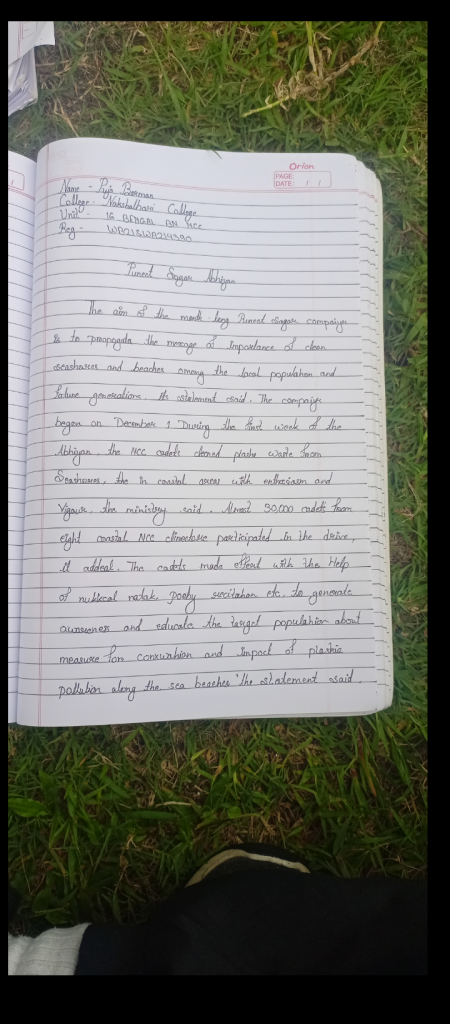 Orion
PAGE:
DATE: / /
Name - Puja Barman
College - Nakshalbari College
Unit - 16 BENGAL BN NCC
Reg -
Puneet Sagar Abhiyan
The aim of the month long Puneet Sagar campaign
is to propogada the message of Importance of clean
seashores and beaches among the local population and
future generations. Its statement said. The campaign
began on December 1. During the first week of the
Abhiyan, the NCC cadets cleaned plastic waste from
Seashores, the in coastal areas with enthusiasm and
Vigour, the ministry said. Almost 30,000 cadets from
eight coastal NCC participated in the drive,
it addeal. The cadets made effort with the Help
of nukkcal natak, poetry recitation etc. to generate
awareness and educate the target population about
measure for and Impact of plastic
pollution along the sea beaches" the statement said.